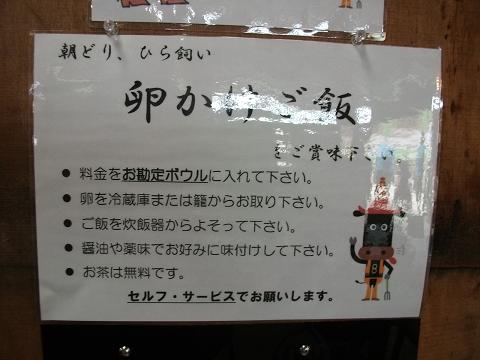 朝どり、ひら飼い
卵かけご飯
をご賞味下さい。
● 料金をお勘定ボウルに入れて下さい。
● 卵を冷蔵庫または籠からお取り下さい。
● ご飯を炊飯器からよそって下さい。
● 醤油や薬味でお好みに味付けして下さい。
● お茶は無料です。
セルフ・サービスでお願いします。
B